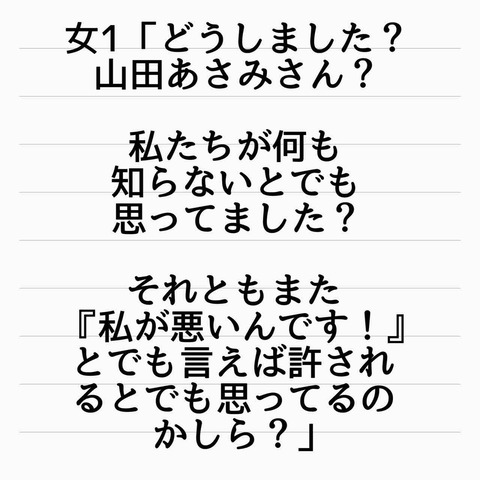 女1「どうしました？
山田あさみさん？
私たちが何も
知らないとでも
思ってました？
それともまた
『私が悪いんです！』
とでも言えば許され
るとでも思ってるの
かしら？」